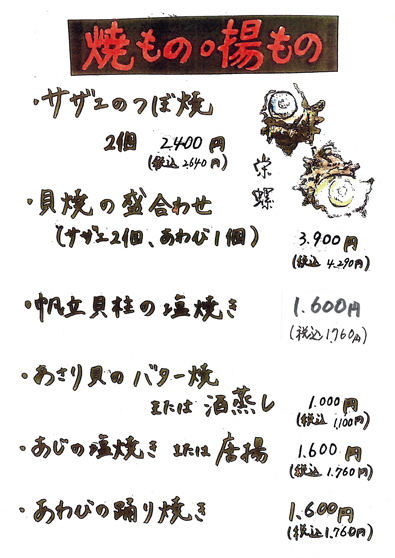 焼もの・揚もの
・サザエのつぼ焼
2個 2.400円
(税込 2.640円)
栄螺
・貝焼の盛合わせ
(サザエ2個、あわび1個) 3.900円
(税込 4.290円)
・帆立貝柱の塩焼き 1.600円
(税込 1.760円)
・あさり貝のバター焼
または 酒蒸し 1.000円
(税込 1,100円)
・あじの塩焼き または 唐揚 1.600円
(税込 1.760円)
・あわびの踊り焼き 1.600円
(税込 1.760円)